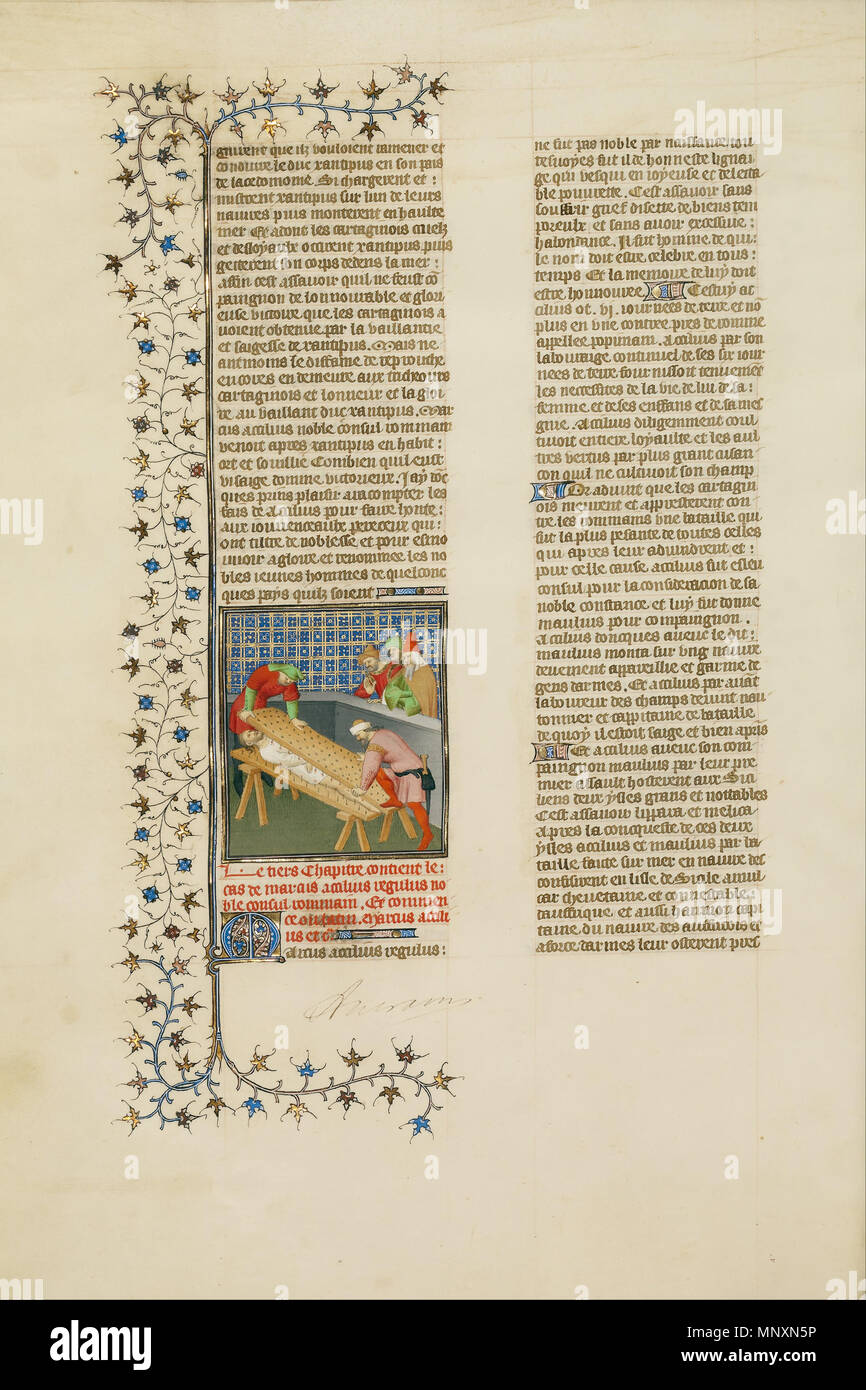 givent que ilz vouloient ramener et
conduire le duc xantipus en son pais
de lacedomone. Si chargerent et :
mistrent xantipus sur lun de leurs
navires puis monterent en haulte
mer Et adont les cartaginois cruelz
et desloyaulx occirent xantipus puis
getterent son corps dedens la mer :
affin cest assavoir quil ne feust cō
paingnon de lonnourable et glori
euse victoire que les cartaginois a
voient obtenue par la vaillantie
et saigesse de xantipus. Mais ne
antmoins le diffame de reprouche
encores en demeure aux tricheours
cartaginois et lonneur et la gloi
re au vaillant duc xantipus. Mar
cus acilius noble consul rommain
venoit apres xantipus en habit :
ort et souillie Combien quil eust
visaige domme victorieux. Jay dōc
ques prins plaisir a racompter les
fais de acilius pour faire honte :
aux iouvenceaulx pereceux qui :
ont tiltre de noblesse et pour esmo
uvoir a gloire et renommee les no
bles ieunes hommes de quelconc
ques pays quilz soient
Le tiers Chapitre contient le :
cas de marcus acilius regulus no
ble consul rommain. Et commen
ce ou latin. Marcus acili
us et cͣ
Marcus acilius regulus :
ne fut pas noble par naissance tou
tesvoyes fut il de honneste lignai
ge qui vesqui en ioyeuse et delecta
ble povrette. Cest assavoir sans
souffrir grief disette de biens tem
porelx et sans avoir excessive :
habondance. Il fut homme de qui :
le nom doit estre celebre en tous :
temps Et la memoire de luy doit
estre honnouree Cestuy at
cilius ot .vi. iournees de terre et nō
plus en une contree pres de romme
appellee popinam. Acilius par son
labouraige continuel de ses six iour
nees de terre fournissoit tenuement
les necessites de la vie de lui de sa :
femme et de ses enffans et de sa mes
gnie. Acilius diligemment coul
tivoit entiere loyaulte et les aul
tres vertus par plus grant cusan
con quil ne cultivoit son champ
Or advint que les cartagin
ois meurent et appresterent con
tre les rommains une bataille qui
fut la plus pesante de toutes celles
qui apres leur advindrent et :
pour celle cause acilius fut esleu
consul pour la consideracion de sa
noble constance et luy fut donne
maulius pour compaignon.
Acilius doncques avecc le dit :
maulius monta sur ung navire
deuement appareillie et garnie de
gens darmes. Et acilius par avāt
laboureur des champs devint nau
tonnier et cappitaine de bataille
de quoy il estoit saige et bien apris
Et acilius avecc son com
paingnon maulius par leur pre
mier assault hosterent aux Sici
liens deux ysles grans et nottables
Cest assavoir lippara et melica
Apres la conqueste de ces deux
ysles acilius et maulius par ba
taille faicte sur mer en navire des
confisirent en lisle de Sicile amul
car chevetaine et connestable
dauffrique et aussi hannon capi
taine du navire des auffricois et
a force darmes leur osterent pres
alamy
alamy
Image ID: MNXN5P
www.alamy.com